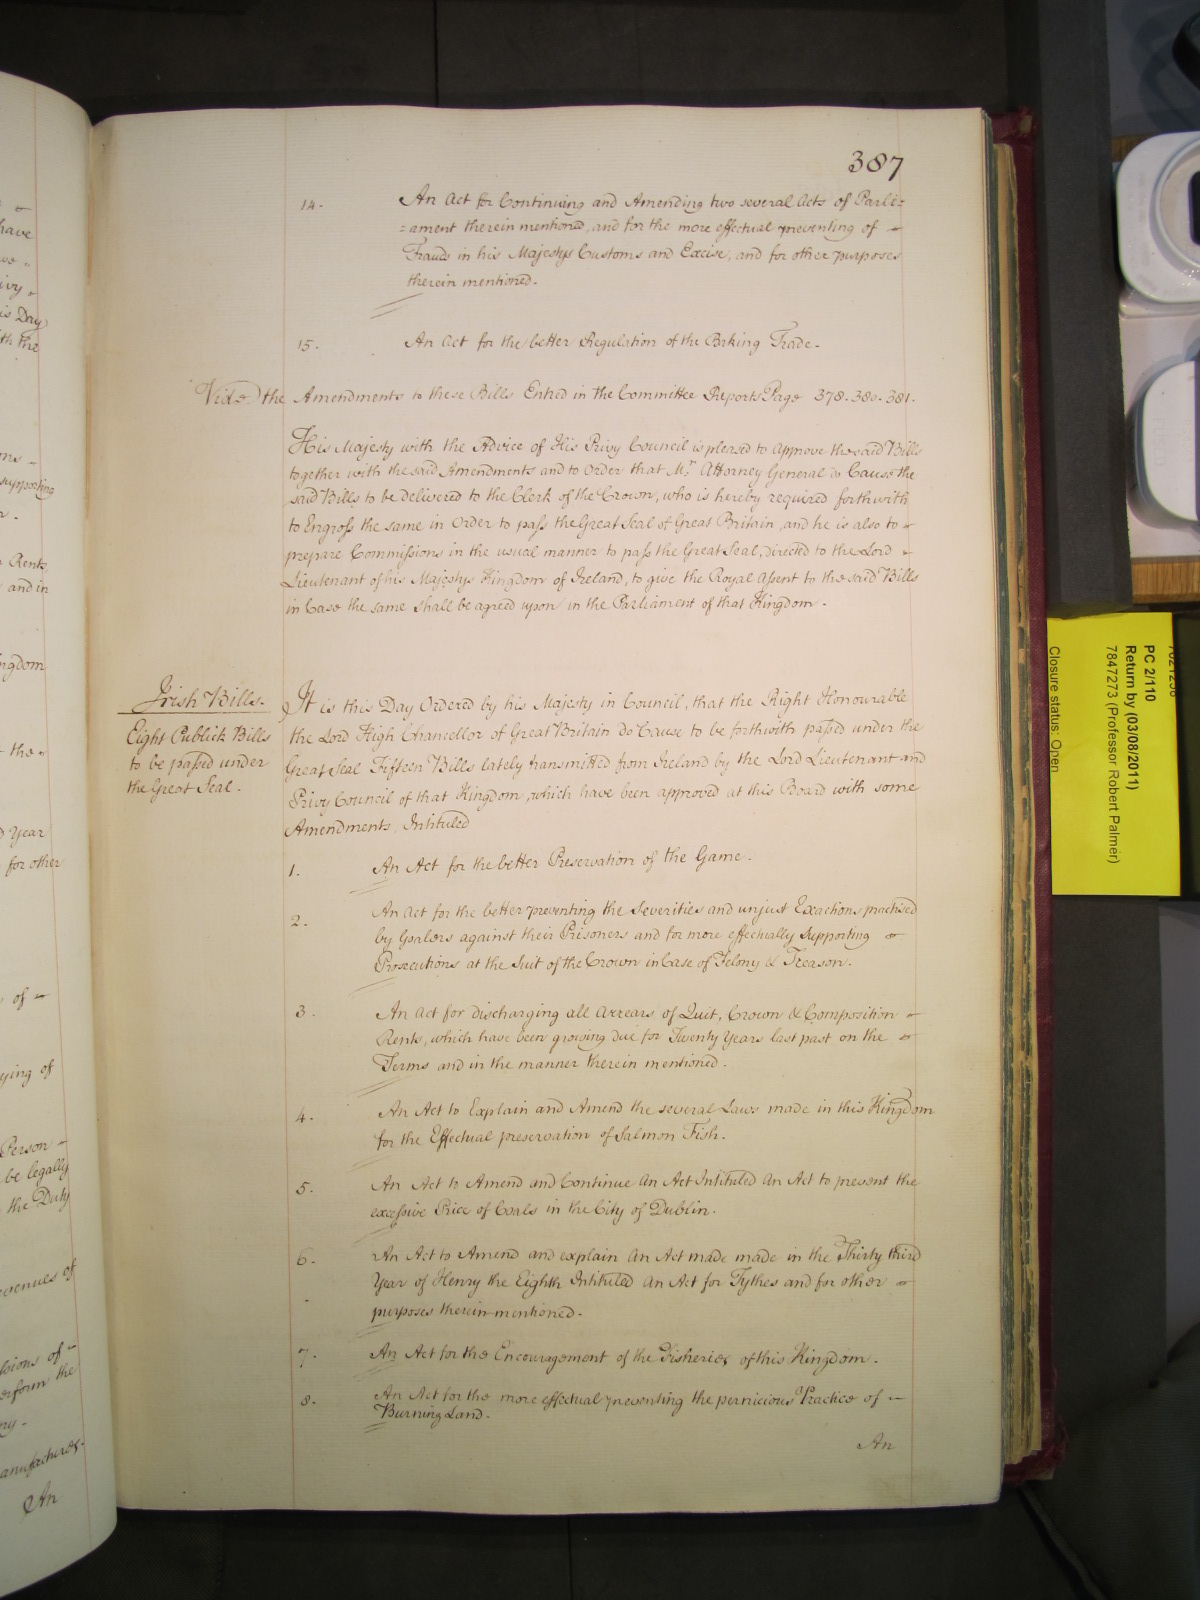 387
14. An Act for Continuing and Amending two several Acts of Parli=
=ament therein mentioned, and for the more effectual preventing of
Frauds in his Majestys Customs and Excise, and for other purposes
therein mentioned.
15. An Act for the better Regulation of the Baking Trade.
Vide the Amendments to these Bills Entred in the Committee Reports Page 378. 380. 381.
His Majesty with the Advice of His Privy Council is pleased to approve the said Bills
together with the said Amendments and to Order that Mr. Attorney General do Cause the
said Bills to be delivered to the Clerk of the Crown, who is hereby required forthwith
to Engross the same in Order to pass the Great Seal of Great Britain, and he is also to
prepare Commissions in the usual manner to pass the Great Seal, directed to the Lord
Lieutenant of his Majestys Kingdom of Ireland, to give the Royal Assent to the said Bills
in Case the same shall be agreed upon in the Parliament of that Kingdom.
Irish Bills.
Eight Publick Bills
to be passed under
the Great Seal.
It is this Day Ordered by his Majesty in Council, that the Right Honourable
the Lord High Chancellor of Great Britain do Cause to be forthwith passed under the
Great Seal Fifteen Bills lately transmitted from Ireland by the Lord Lieutenant and
Privy Council of that Kingdom, which have been approved at this Board with some
Amendments, Intituled
1. An Act for the better Preservation of the Game.
2. An Act for the better preventing the Severities and unjust Exactions practised
by Goalers against their Prisoners and for more effectually Supporting
Prosecutions at the Suit of the Crown in Case of Felony & Treason.
3. An Act for discharging all Arrears of Quit, Crown & Composition
Rents, which have been growing due for Twenty Years last past on the
Terms and in the manner therein mentioned.
4. An Act to Explain and Amend the several Laws made in this Kingdom
for the Effectual preservation of Salmon Fish.
5. An Act to Amend and Continue An Act Intituled An Act to prevent the
excessive Price of Coals in the City of Dublin.
6. An Act to Amend and explain An Act made made in the Thirty third
Year of Henry the Eighth Intituled An Act for Tythes and for other
purposes therein mentioned.
7. An Act for the Encouragement of the Fisheries of this Kingdom.
8. An Act for the more effectual preventing the pernicious Practice of
Burning Land.
An
have
is Day
th the
supporting
Rents
and in
ngdom
the
Year
for other
of
ying of
Person
be legally
the Duty
evenues of
of
erform the
anufactures.
An
PC 2/110
Return by (03/08/2011)
7847273 (Professor Robert Palmer)
Closure status: Open